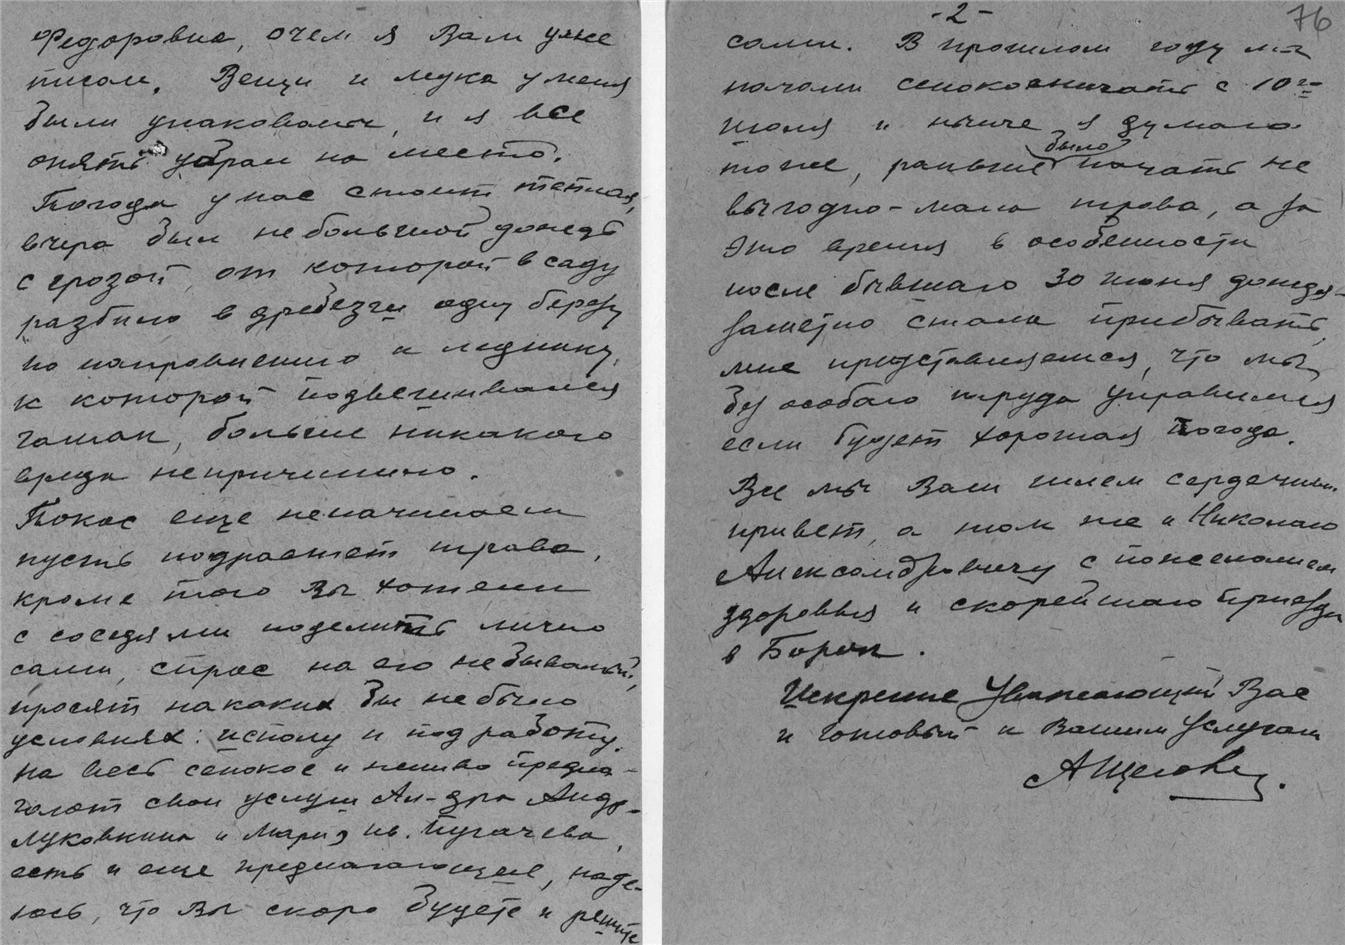 Федоровна, о чем я Вам уже
писал. Вещи и мука у меня
были упакованы, и я все
опять убрал на место.
Погода у нас стоит теплая,
вчера был небольшой дождь
с грозой, от которой в саду
разбило в дребезги одну березу
по направлению к леднику,
к которой подвешивался
гамак, больше никакого
вреда непричинило.
Покос еще неначинаем
пусть подрастет трава,
кроме того Вы хотели
с соседями поделить лично
сами, спрос на его небывалый,
просят на каких бы не было
условиях: исполу и под работу.
На весь сенокос и жниво предла-
гают свои услуги Ал-дра Андр.
Луковкина и Мария Ив. Пугачева,
есть и еще предлагающие, наде-
юсь, что Вы скоро будете и решите
-2-
76
сами. В прошлом году мы
начали сенокосничать с 10го
июля и нынче я думаю
тоже, раньше было начать не
выгодно-мала трава, а за
это время в особенности
после бывшаго 30 июня дождя-
заметно стала прибывать,
мне представляется, что мы
без особаго труда управимся
если будет хорошая погода.
Все мы Вам шлем сердечный
привет, а том же и Николаю
Александровичу с пожеланием
здоровья и скорейшаго приезда
в Борок.
Искренне Уважающий Вас
и готовый к Вашим услугам